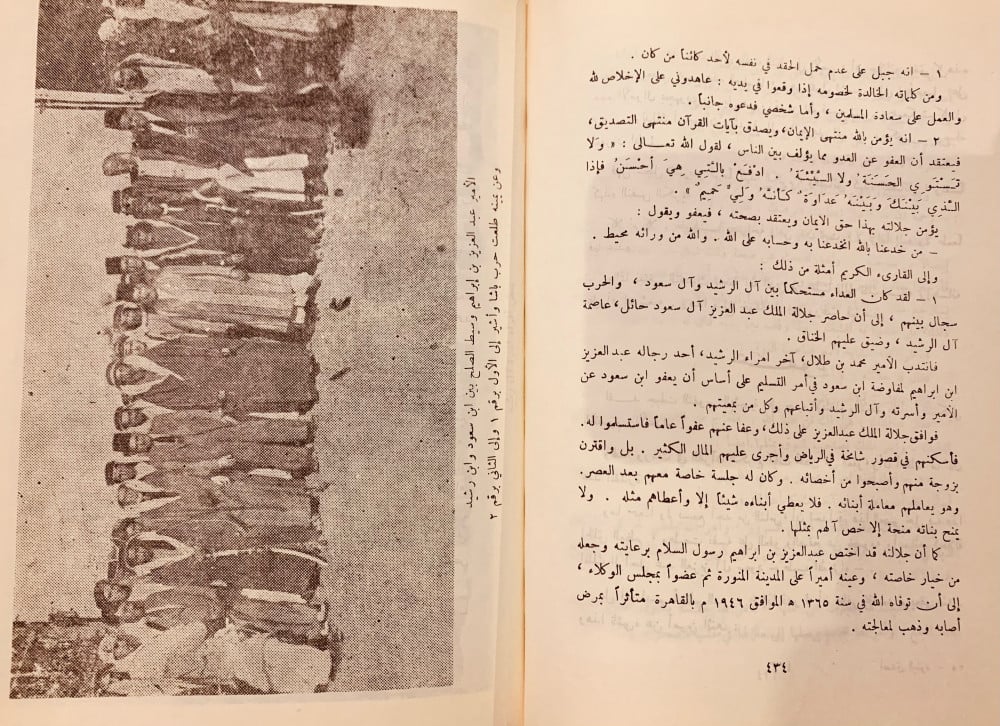 ١ – انه جبل على عدم حمل الحقد في نفسه لأحد كائناً من كان .
ومن كلماته الخالدة لخصومه إذا وقعوا في يديه : عاهدوني على الإخلاص لله
والعمل على سعادة المسلمين ، وأما شخصي فدعوه جانباً .
٢ – انه يؤمن بالله منتهى الإيمان، ويصدق بآيات القرآن منتهى التصديق،
فيعتقد أن العفو عن العدو مما يؤلف بين الناس ، لقول الله تعـــالى : « وَلا
تَسْتَوي الحَسَنَةُ ولا السَّيِّئَةُ . ادْفَعْ بِالَّتي هِيَ أَحْسَنُ فإذا
الَّذي بَيْنَكَ وَبَيْنَهُ عَدَاوَةٌ كَأنَّهُ وَلِيٌّ حَمِيمٌ » .
يؤمن جلالته بهذا حق الايمان ويعتقد بصحته ، فيعفو ويقول :
– من خدعنا بالله انخدعنا به وحسابه على الله . والله من ورائه محيط .
وإلى القارىء الكريم أمثلة من ذلك :
١ – لقد كان العداء مستحكماً بين آل الرشيد وآل سعود ، والحرب
سجال بينهم ، إلى أن حاصر جلالة الملك عبد العزيز آل سعود حائل، عاصمة
آل الرشيد ، وضيق عليهم الخناق .
فانتدب الأمير محمد بن طلال، آخر امراء الرشيد، أحد رجاله عبدالعزيز
ابن ابراهيم لمفاوضة ابن سعود في أمر التسليم على أساس أن يعفو ابن سعود عن
الأمير وأسرته وآل الرشيد وأتباعهم وكل من بمعيتهم .
فوافق جلالة الملك عبدالعزيز على ذلك، وعفا عنهم عفواً عاماً فاستسلموا له.
فأسكنهم في قصور شامخة في الرياض وأجرى عليهم المال الكثير . بل واقترن
بزوجة منهم وأصبحوا من أخصائه . وكان له جلسة خاصة معهم بعد العصر.
وهو يعاملهم معاملة أبنائه . فلا يعطي أبناءه شيئاً إلا وأعطاهم مثله . ولا
يمنح بناته منحة إلا خص آلهم بمثلها .
كما أن جلالته قد اختص عبدالعزيز بن ابراهيم رسول السلام برعايته وجعله
من خيار خاصته ، وعينه أميراً على المدينة المنورة ثم عضواً بمجلس الوكلاء ،
إلى أن توفاه الله في سنة ١٣٦٥ ه الموافق ١٩٤٦ م بالقاهرة متأثراً بمرض
أصابه وذهب لمعالجته .
٤٣٤
الأمير عبد العزيز بن إبراهيم وسيط الصلح بين ابن سعود وابن رشيد
وعن يمينه طلعت حرب باشا وأشير إلى الأول برقم ١ وإلى الثاني برقم ٢